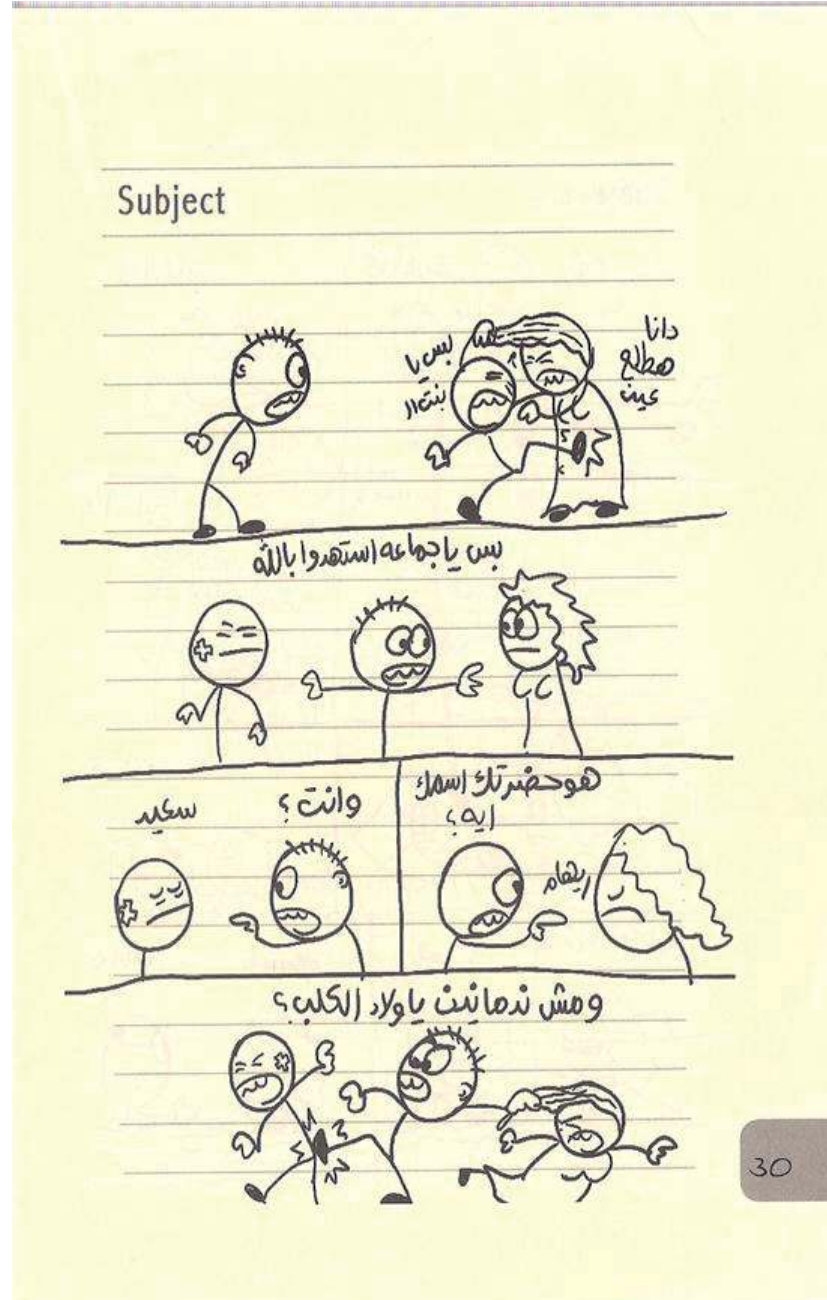 Subject
دانا
هطلع
عين
بس يا
بنت ال
بس يا جماعه استهدوا بالله
هو حضرتك اسمك
ايه؟
ريهام
وانت؟
سعيد
ومش ندمانين يا ولاد الكلب؟
30